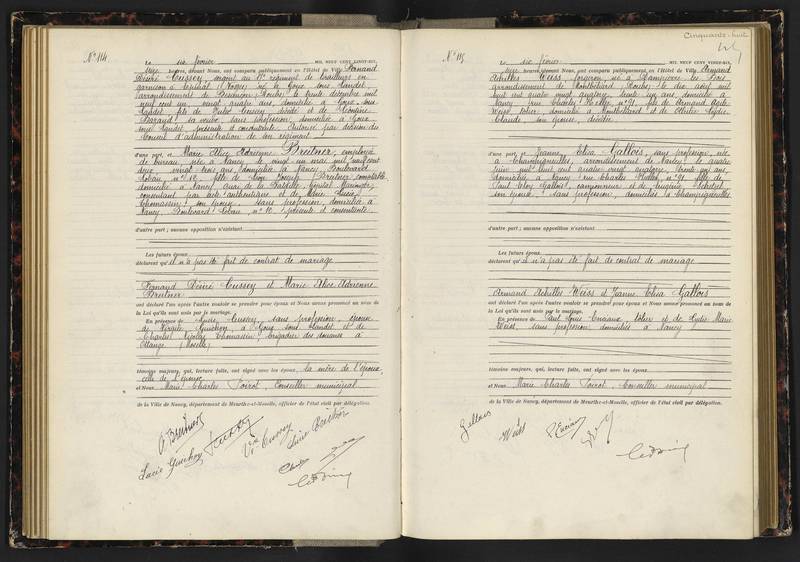 Cinquante-huit
N° 114
Le six février MIL NEUF CENT VINGT-SIX,
heures, devant Nous, ont comparu publiquement en l'Hôtel de Ville, Fernand
Désiré Cussey, sergent au régiment de tirailleurs en
garnison à Epinal (Vosges) né à Goux sous Landet
arrondissement de Besançon (Doubs) le trente décembre mil
neuf cent un, vingt quatre ans, domicilié à Goux sous
Landet, fils de Cussey, décédé et de
sa veuve, sans profession, domiciliée à Goux
sous Landet, présente et consentante. Autorisé par décision du
Conseil d'administration de son régiment
d'une part, et Marie Alice Adrienne Breitner, employée
de bureau, née à Nancy le vingt un mai mil neuf cent
deux, vingt trois ans, domiciliée à Nancy Boulevard
Lobau, n° 10, fille de Breitner, comptable,
domicilié à Nancy, quai de la Bataille,
consentant par acte authentique et de Marie Lucie
Thomassin, son épouse, sans profession, domiciliée à
Nancy, Boulevard Lobau, n° 10, présente et consentante.
d'autre part ; aucune opposition n'existant
Les futurs époux
déclarent qu'il n'a pas de fait de contrat de mariage
Fernand Désiré Cussey et Marie Alice Adrienne
Breitner
ont déclaré l'un après l'autre vouloir se prendre pour époux et Nous avons prononcé au nom de
la Loi qu'ils sont unis par le mariage.
En présence de Lucie Cussey, sans profession, épouse
de Virgile Guichoy, à Goux sous Landet et de
Charles Nicolas Thomassin, brigadier des douanes à
Ottange (Moselle)
témoins majeurs, qui, lecture faite, ont signé avec les époux, la mère de l'époux,
celle de l'épouse
et Nous Marie Charles Poirot, Conseiller municipal
de la Ville de Nancy, département de Meurthe-et-Moselle, officier de l'état civil par délégation.
A Breitner
Cussey
Lucie Guichoy
Vve Cussey
N° 115
Le six février MIL NEUF CENT VINGT-SIX,
heures, devant Nous, ont comparu publiquement en l'Hôtel de Ville, Armand
Achilles Weiss, forgeron, né à Dampierre les Bois
arrondissement de Montbéliard (Doubs) le dix août mil
huit cent quatre vingt quatorze, trente un ans, domicilié à
Nancy, rue Charles n° 91, fils de Armand
Weiss, tôlier, domicilié à Montbéliard et de Lydie
Claude, son épouse, décédée
d'une part, et Jeanne Elisa Gallois, sans profession, née
à Champigneulles, arrondissement de Nancy, le quatre
juin mil huit cent quatre vingt quatorze, trente un ans,
domiciliée à Nancy, rue Charles n° 91, fille de
Paul Gallois, camionneur et de Eugénie
son épouse, sans profession, domiciliés à Champigneulles
d'autre part ; aucune opposition n'existant
Les futurs époux
déclarent qu'il n'a pas de fait de contrat de mariage
Armand Achilles Weiss et Jeanne Elisa Gallois
ont déclaré l'un après l'autre vouloir se prendre pour époux et Nous avons prononcé au nom de
la Loi qu'ils sont unis par le mariage.
En présence de Paul Louis tôlier et de Lydie Marie
Weiss, sans profession, domiciliés à Nancy
témoins majeurs, qui, lecture faite, ont signé avec les époux
et Nous Marie Charles Poirot, Conseiller municipal
de la Ville de Nancy, département de Meurthe-et-Moselle, officier de l'état civil par délégation.
Gallois
Weiss